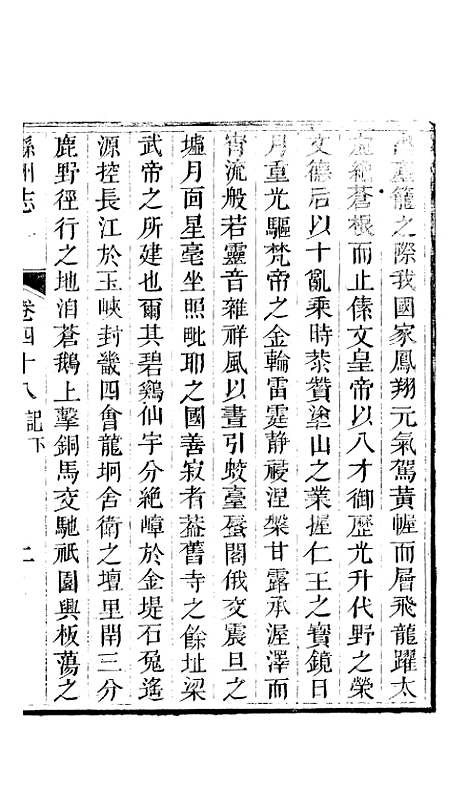 籠之際我國家鳳翔元氣駕黃幄而層飛龍躍太
蒼根而止傃文皇帝以八才御歷光升代野之榮
文德后以十亂乘時恭贊塗山之業握仁王之寶鏡日
月重光驅梵帝之金輪雷霆靜祲涅槃甘露承渥澤而
宵流般若靈音雜祥風以晝引蛟臺蜃閣俄交震旦之
墟月面星毫坐照毗耶之國善寂者葢舊寺之餘址梁
武帝之所建也爾其碧鷄仙宇分絶嶂於金堤石兔遙
源控長江於玉峽封畿四會龍坰舍衛之壇里閈三分
鹿野徑行之地洎蒼鵝上擊銅馬交馳祇園興板蕩之
縣州志 卷四十八 記下 二